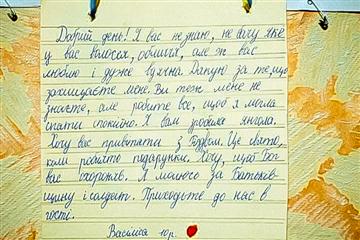 Добрий день! Я вас не знаю, не бачу яке
у вас волосся, обличчя, але я вас
люблю і дуже вдячна. Дякую за те, що
захищаєте мене. Ви теж мене не
знаєте, але робите все, щоб я могла
спати спокійно. Я вам зробила янгола.
Хочу вас привітати з Різдвом. Це свято,
коли роблять подарунки. Хочу, щоб Бог
вас охороняв. Я молюсь за Батьків-
щину і солдат. Приходьте до нас в
гості.
Василіса 10 р.